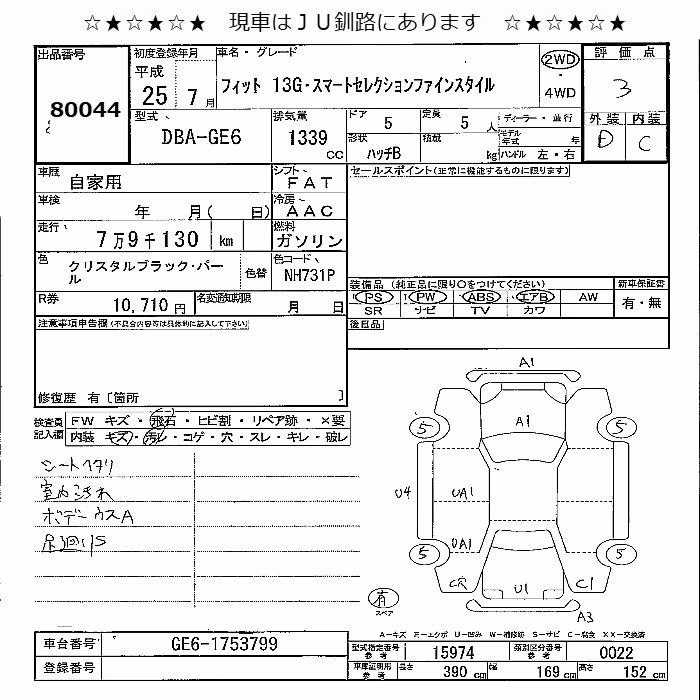 ☆★☆★☆★ 現車はＪＵ釧路にあります ☆★☆★☆★
出品番号
80044
初度登録年月
平成
25 7 月
車名・グレード
フィット 13G・スマートセレクションファインスタイル
2WD
・
4WD
評価点
3
外装 内装
D C
型式
DBA-GE6
排気量
1339
cc
ドア
5
定員
5
人
形状
ハッチB
積載
kg
ディーラー・並行
モデル年式 年
ハンドル 左・右
車歴
自家用
シフト
FAT
車検
年 月( 日)
冷房
AAC
走行
7万9千130 km
燃料
ガソリン
色
クリスタルブラック・パール
色替
色コード
NH731P
R券
10,710 円
名変通知期限
月 日
セールスポイント(正常に機能するものに限ります)
装備品 (純正品に限り○をつけてください)
PS PW ABS エアB AW
SR ナビ TV カワ
新車保証書
有・無
後日品
注意事項申告欄(不具合内容等は具体的に記入して下さい)
修復歴 有〔箇所 〕
検査員記入欄
FW キズ・飛石・ヒビ割・リペア跡・×要
内装 キズ・汚レ・コゲ・穴・スレ・キレ・破レ
シートヘタリ
室内汚れ
ボデーウスA
足廻りS
A1
A1
5
5
U4
UA1
UA1
5
5
CR
U1
C1
A3
有
スペア
A-キズ E-エクボ U-凹み W-補修跡 S-サビ C-腐食 XX-交換済
車台番号
GE6-1753799
登録番号
型式指定番号 参考
15974
類別区分番号 参考
0022
車庫証明用 参考
長さ 390 cm
幅 169 cm
高さ 152 cm